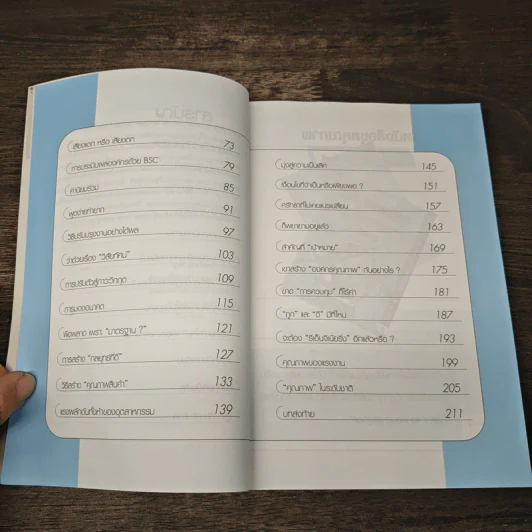 เสียงแตก หรือ เสียงตก 73
การประเมินผลองค์กรด้วย BSC 79
ค่านิยมร่วม 85
พูดง่ายทำยาก 91
วิธีปรับปรุงงานอย่างได้ผล 97
ว่าด้วยเรื่อง "วิสัยทัศน์" 103
การปรับตัวสู่ภาวะวิกฤต 109
การมองอนาคต 115
ผิดพลาด เพราะ "มาตรฐาน ?" 121
การสร้าง "กลยุทธ์ที่ดี" 127
วิธีสร้าง "คุณภาพสินค้า" 133
แรงผลักดันทั้งห้าของอุตสาหกรรม 139
มุ่งสู่ความเป็นเลิศ 145
เงื่อนไขที่จำเป็นหรือเพียงพอ ? 151
ศรัทธาที่ไม่เคยแปรเปลี่ยน 157
ก็พยายามอยู่แล้ว 163
สำคัญที่ "เป้าหมาย" 169
เขาสร้าง "องค์กรคุณภาพ" กันอย่างไร ? 175
ขาด "การควบคุม" ก็ไร้ค่า 181
"ถูก" และ "ดี" มีที่ไหน 187
จะต้อง "รีเอ็นจิเนียริ่ง" อีกแล้วหรือ ? 193
คุณภาพของแรงงาน 199
"คุณภาพ" ในระดับชาติ 205
บทส่งท้าย 211